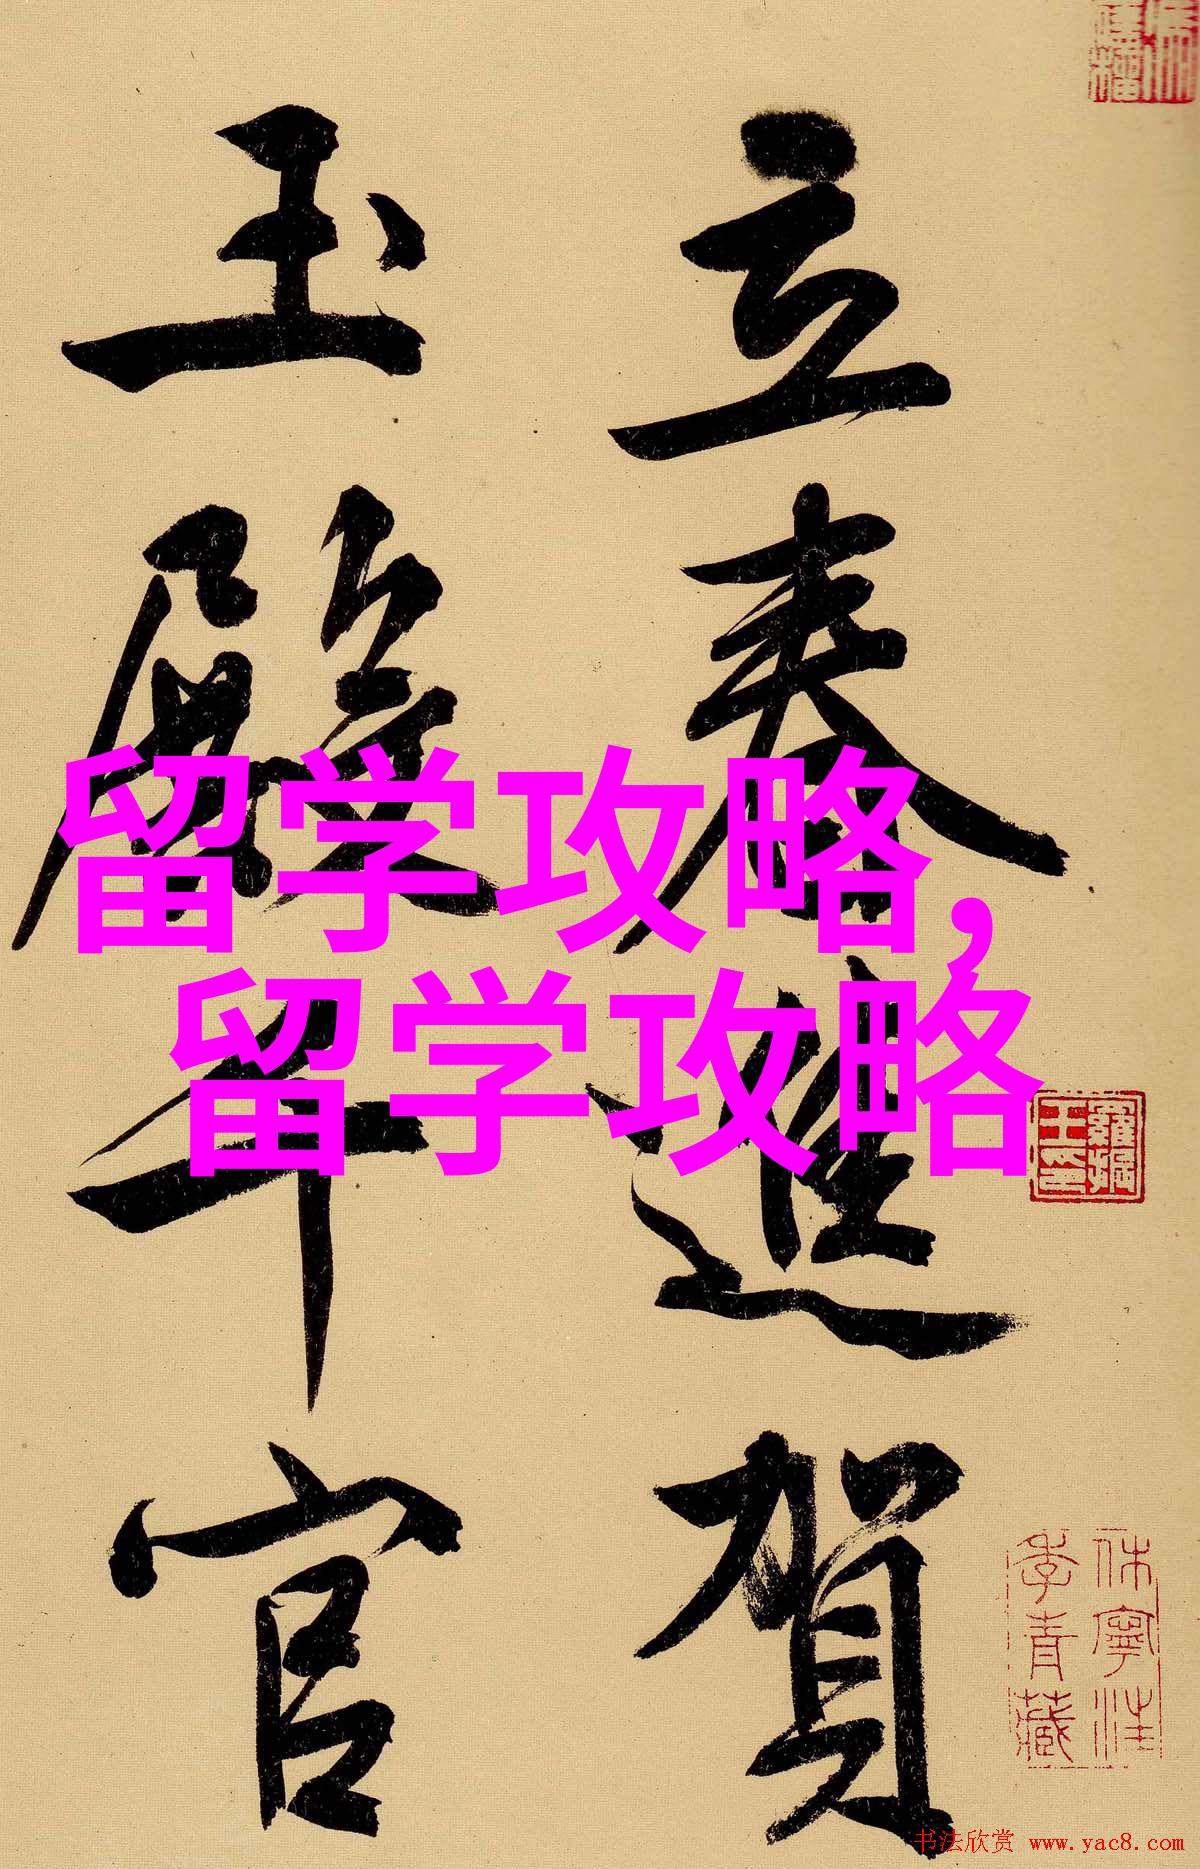 立春進賀
玉殿千官
留学攻略,
留学攻略
休寧汪
季青藏
书法欣赏 www.yac8.com